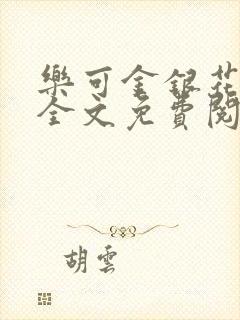 樂可金銀花
全文免費閱
胡雲